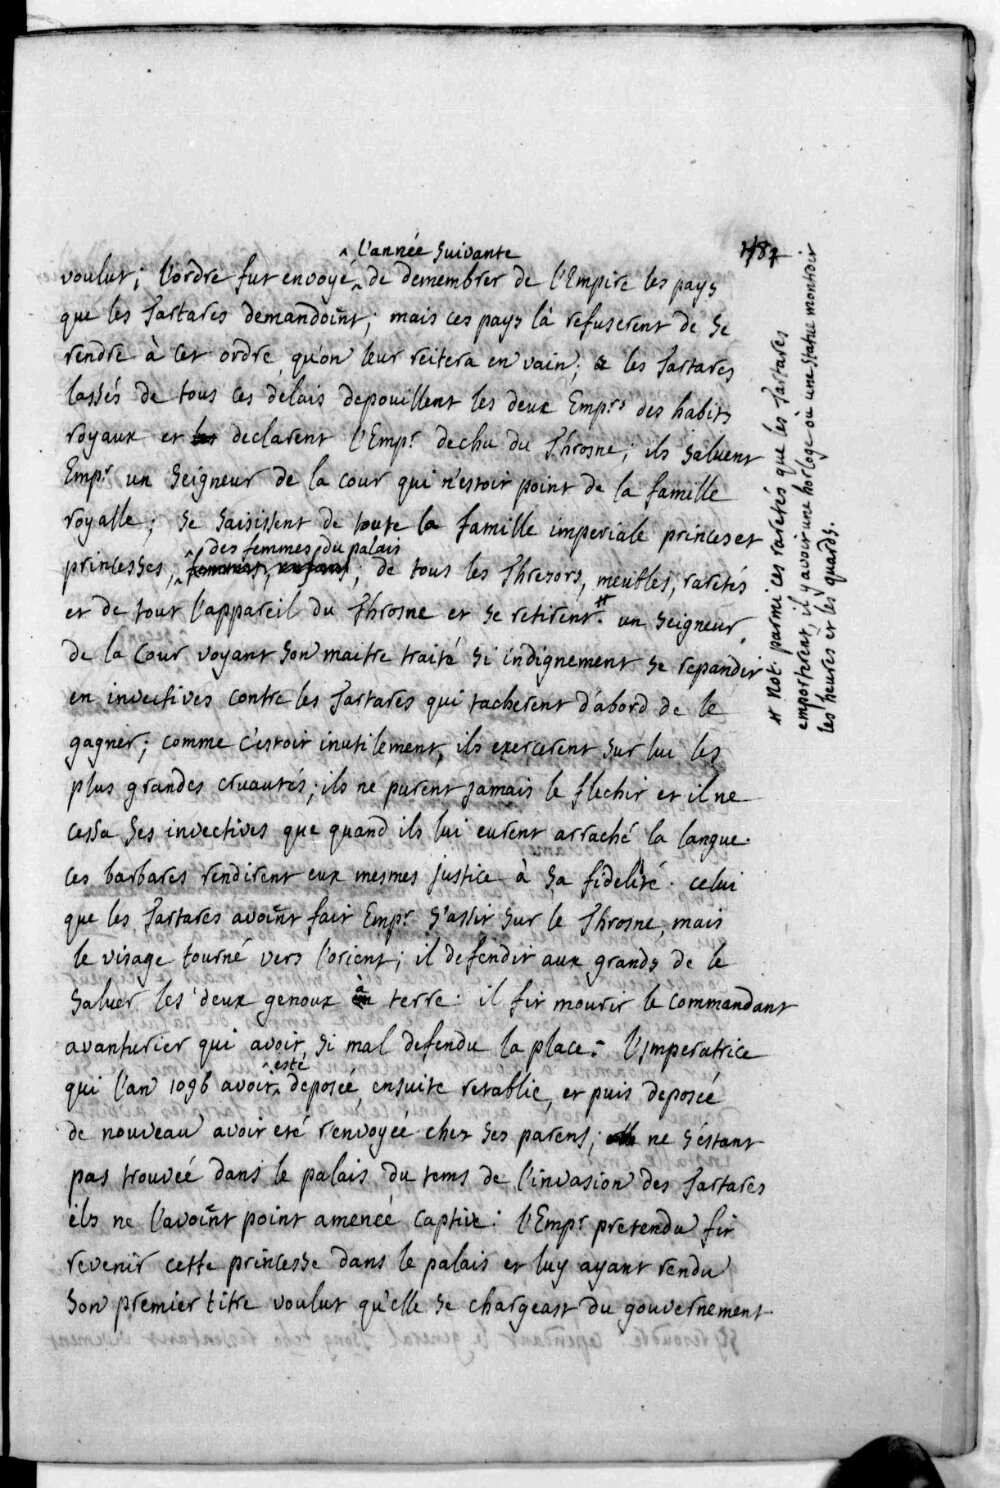 l'année suivante
voulut; l'ordre fut envoyé de demembrer de l'Empire les pays
que les Tartares demandoint; mais ces pays là refuserent de se
rendre à cet ordre qu'on leur reitera en vain; & les Tartares
lassés de tous ces delais depouillent les deux Emprs des habits
royaux et declarent l'Empr dechu du Throsne; ils saluent
Empr un seigneur de la cour qui n'estoit point de la famille
royalle; se saisissent de toute la famille imperiale princes et
des femmes du palais
princesses, femmes, enfans; de tous les Thresors, meubles, raretés
et de tout l'appareil du Throsne et se retirent. # un seigneur
de la Cour voyant son maitre traité si indignement se repandit
en invectives contre les Tartares qui tacherent d'abord de le
gagner; comme c'estoit inutilement, ils exercerent sur lui les
plus grandes cruautés; ils ne purent jamais le flechir et il ne
cessa ses invectives que quand ils lui eurent arraché la langue.
ces barbares rendirent eux mesmes justice à sa fidelité. celui
que les Tartares avoint fait Empr s'assit sur le Throsne, mais
le visage tourné vers l'orient; il defendit aux grands de le
saluer les deux genoux à terre: il fit mourir le commandant
avanturier qui avoit si mal defendu la place. L'Imperatrice
esté
qui l'an 1096 avoit deposée, ensuite retablie, et puis deposée
de nouveau avoit eté renvoyée chez ses parens; ne s'estant
pas trouvée dans le palais du tems de l'invasion des Tartares
ils ne l'avoint point amenée captive: l'Empr pretendu fit
revenir cette princesse dans le palais et luy ayant rendu
son premier titre voulut qu'elle se chargeast du gouvernement
# Not. parmi ces raretés que les Tartares
emporterent, il y avoit une horloge où une statue montroit
les heures et les quards.